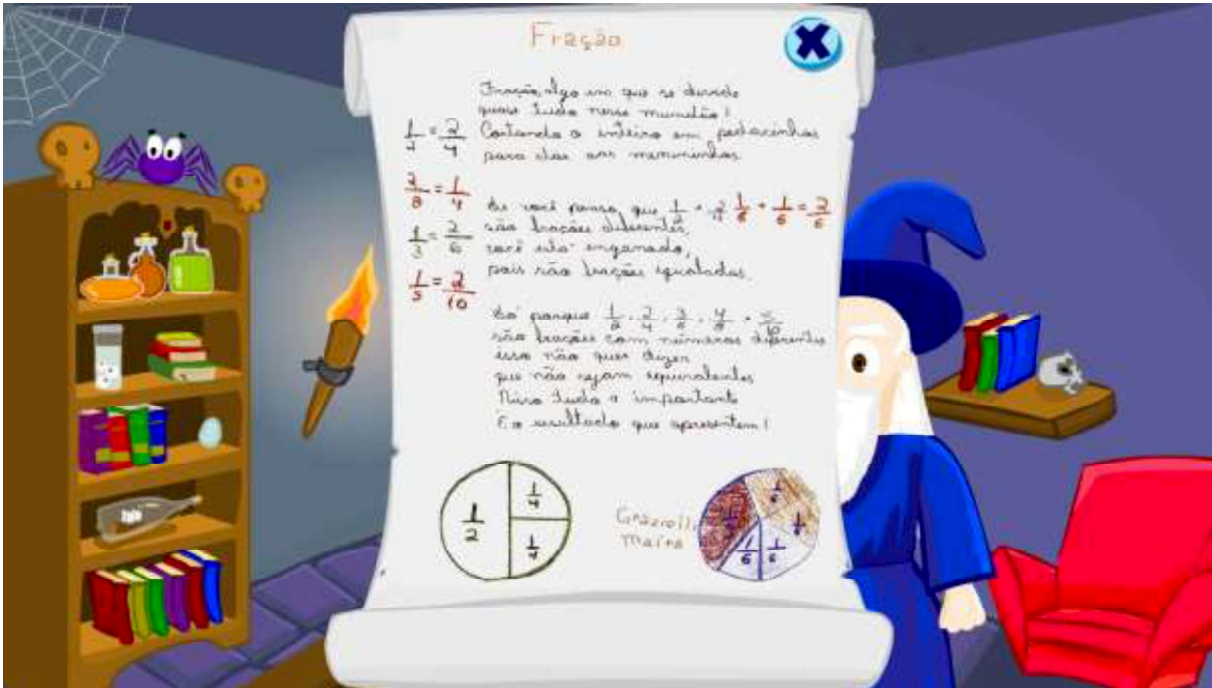 Fração
Fração, algo em que se divide
quase tudo nesse mundão!
= 2/4 Cortando o inteiro em pedacinhos
para dar aos menininhos
2/8 = 1/4
Se você pensa, que 1/2 e 2/4 1/6 + 1/6 = 2/6
1/3 = 2/6 são frações diferentes,
você está enganado,
1/5 = 2/10 pois são frações igualadas.
Só porque 1/2, 2/4, 3/6, 4/8 e 5/10
são frações com números diferentes
isso não quer dizer
que não sejam equivalentes
Nisso tudo o importante
É o resultado que apresentam!
1/2 1/4 1/4
1/6 1/6 1/6 1/6 1/6